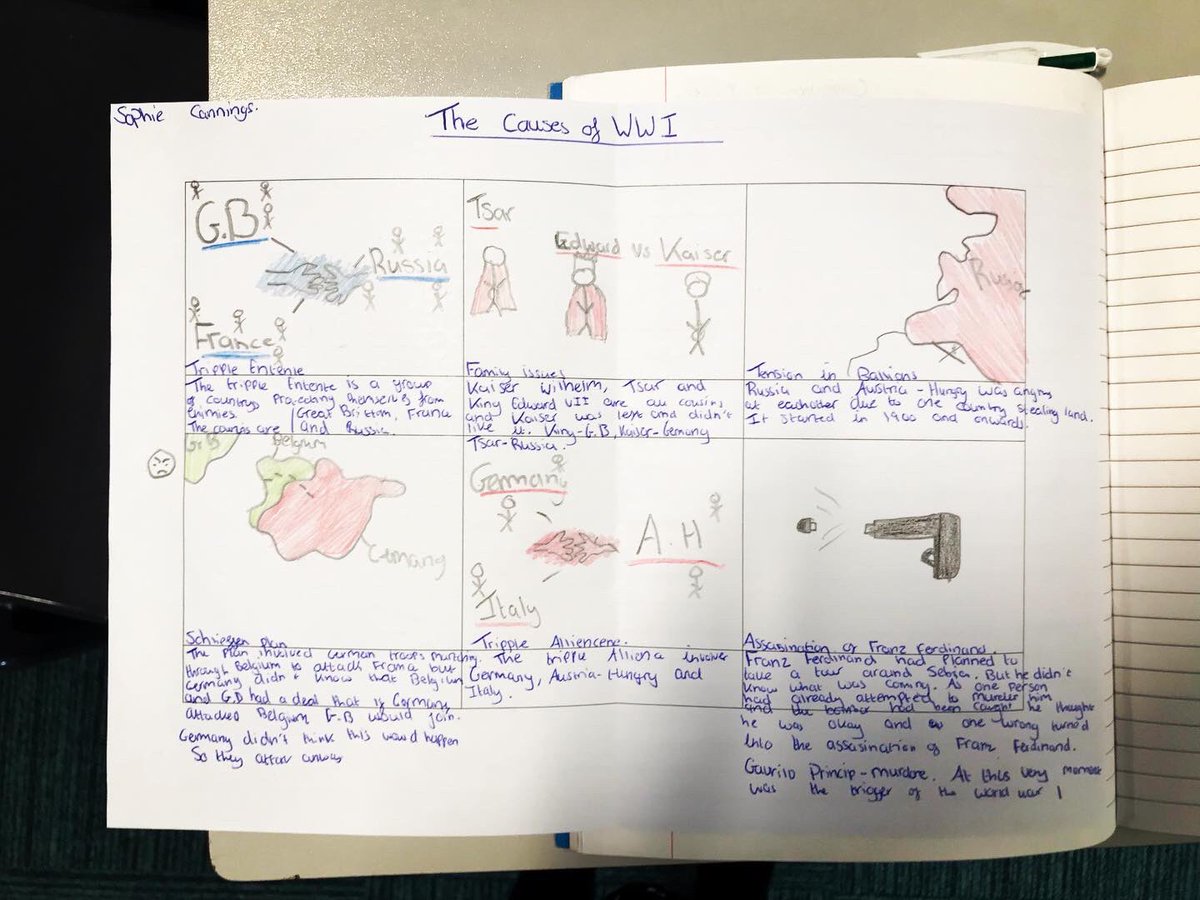 Sophie Cannings.
The Causes of WWI
G.B
Russia
France
Tripple Entente
The tripple Entente is a group
of countrys protecting themselves from
enimies.
The countes are / Great Brittam, France
and Russia.
Tsar
Edward vs Kaiser
Family issues
Kaiser Wilhelm, Tsar and
King Edward VII are all cousins
and Kaiser was left and didn't
like it. King-G.B, Kaiser-Gemany
Tsar-Russia.
Russia
Tension in
Russia and Austria-Hungry was angry
at eachother due to one country stealing land.
It started in 1900 and onwards.
G.B
Belgium
Germany
plan
The plan involved German troops
through Belgium to attack France but
Germany didn't know that Belgium
and G.B had a deal that if Germany
attacked Belgium G.B would join.
Germany didn't think this would happen
So they
Germany
A.H
Italy
Tripple
The tripple involves
Germany, Austria-Hungry and
Italy.
Assasination of Franz Ferdinand.
Franz Ferdinand had planned to
take a tour around But he didn't
know what was coming. As one person
had already attempted to murder him
and had been caught he thought
he was okay and as one wrong turned
into the assasination of Franz Ferdinand.
Princip-murdore. At this very
was the trigger of the world war 1